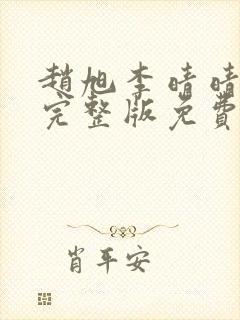 趙旭李晴晴
完整版免費
肖平安